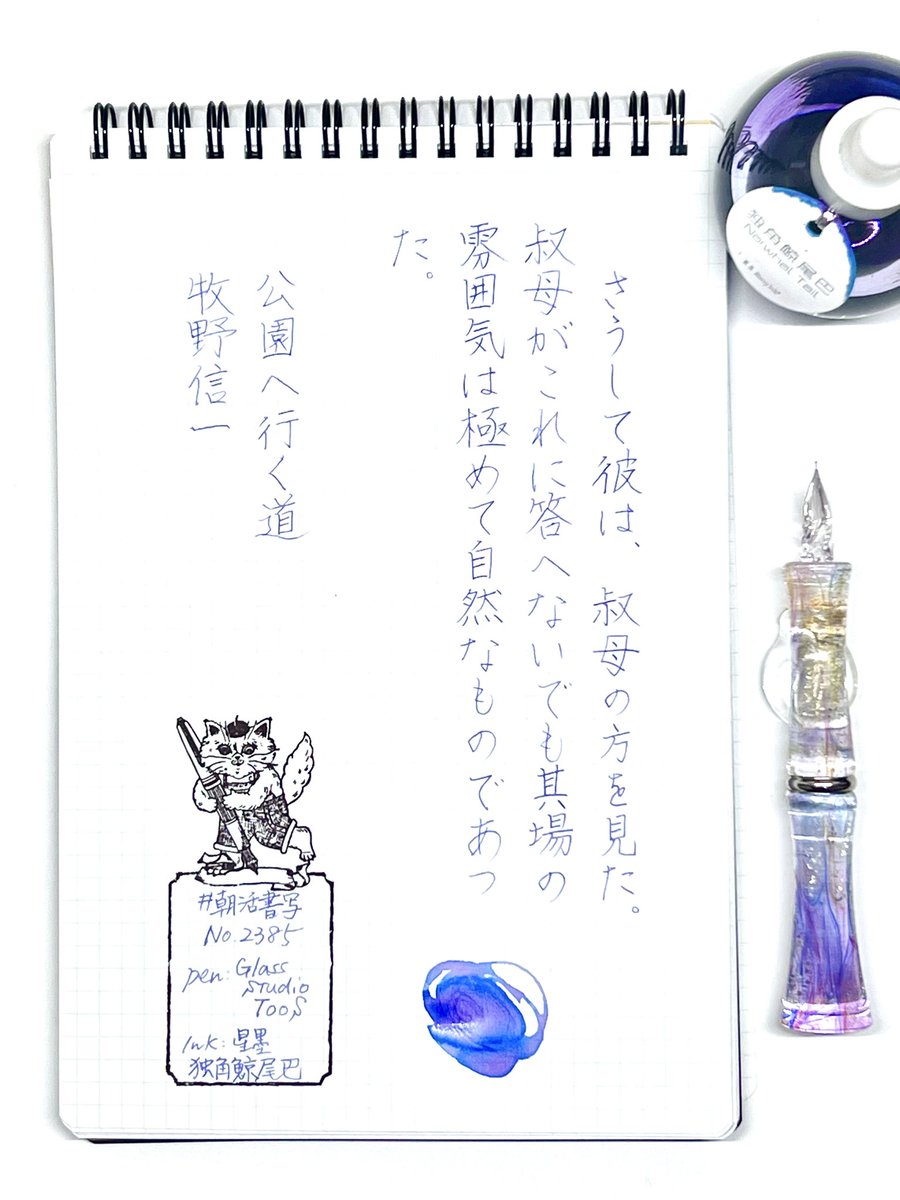 さうして彼は、叔母の方を見た。
叔母がこれに答へないでも其場の
雰囲気は極めて自然なものであつ
た。
公園へ行く道
牧野信一
#朝活書写
No.2385
pen: Glass
Studio
TooS
Ink: 星墨
独角鯨尾巴
独角鲸尾巴
Narwhal Tail